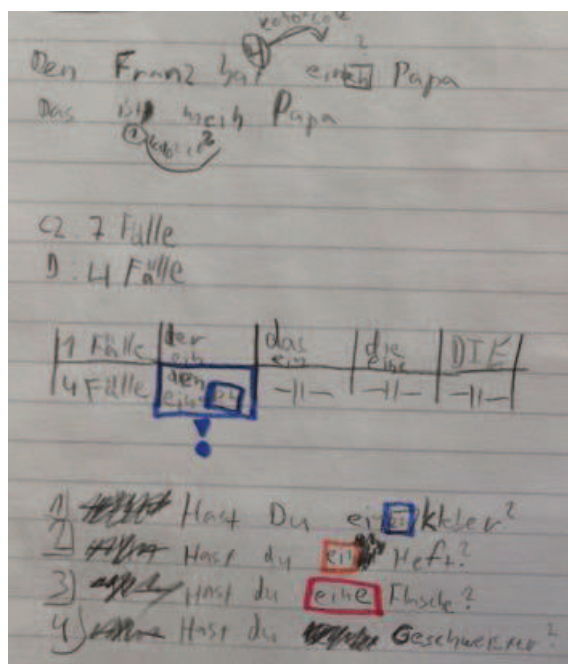 4 koho? co?
Den Franz hat einen Papa
Das ist mein Papa
1 kdo? co?
CZ: 7 Fälle
D: 4 Fälle
1 Fälle der ein das ein die eine DIE
4 Fälle den einen -||- -||- -||-
!
1) Hast Du einen kleber?
2) Hast du ein Heft?
3) Hast du eine Flasche?
4) Hast du Geschwister?